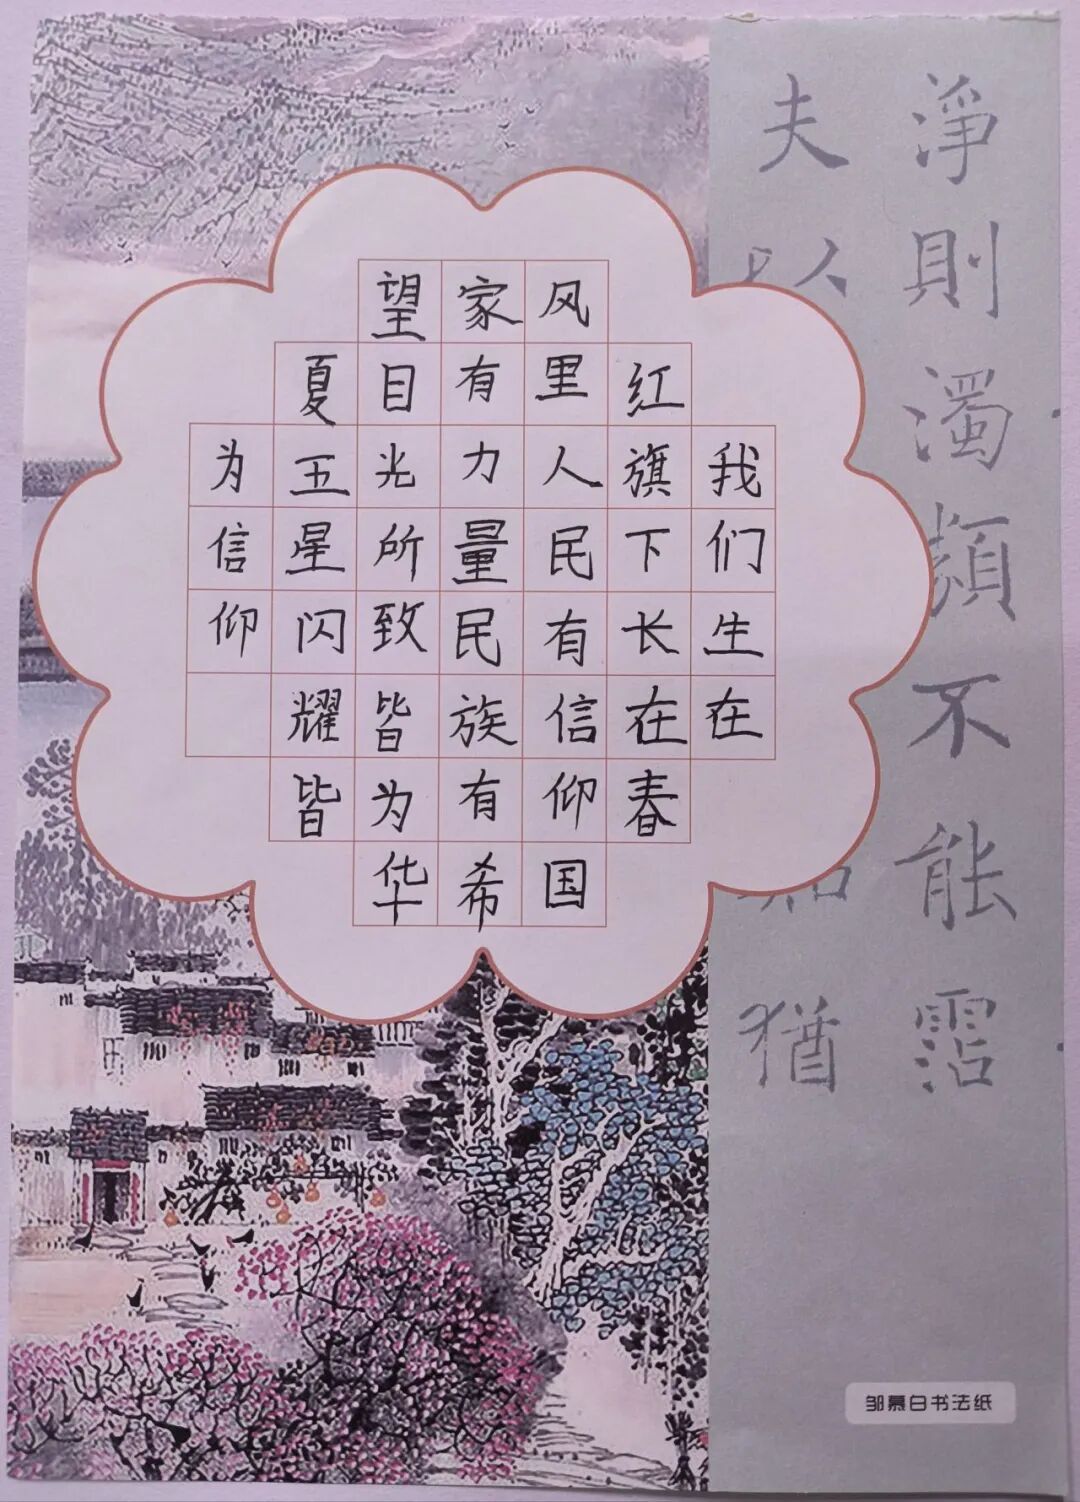 我们生在
红旗下长在春
风里人民有信仰国
家有力量民族有希
望目光所致皆为华
夏五星闪耀皆
为信仰
淨則濁類不能霑
夫以
猶
邹慕白书法纸